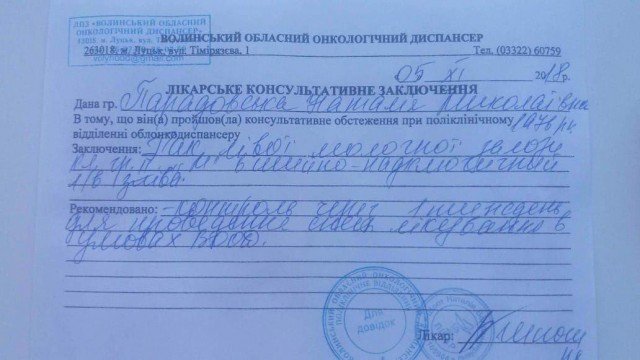 ЛПЗ «ВОЛИНСЬКИЙ ОБЛАСНИЙ
ОНКОЛОГІЧНИЙ ДИСПАНСЕР»
43018 м. Луцьк, вул. Тімірязєва, 1
ВОЛИНСЬКИЙ ОБЛАСНИЙ ОНКОЛОГІЧНИЙ ДИСПАНСЕР
м. Луцьк, вул. Тімірязєва, 1 Тел. (03322) 60759
05 XI 2018р.
ЛІКАРСЬКЕ КОНСУЛЬТАТИВНЕ ЗАКЛЮЧЕННЯ
Дана гр. Парадовська Наталія Миколаївна
В тому, що він(а) пройшов(ла) консультативне обстеження при поліклінічному 1976 р.н.
відділенні облонкодиспансеру
Заключення: Рак лівої молочної залози
кл. гр. II в шийно-надключичний
л/в зліва.
Рекомендовано: - контроль через 1 тиждень
для проведення спец. лікування в
умовах ВООД.
Для
довідок
Лікар: